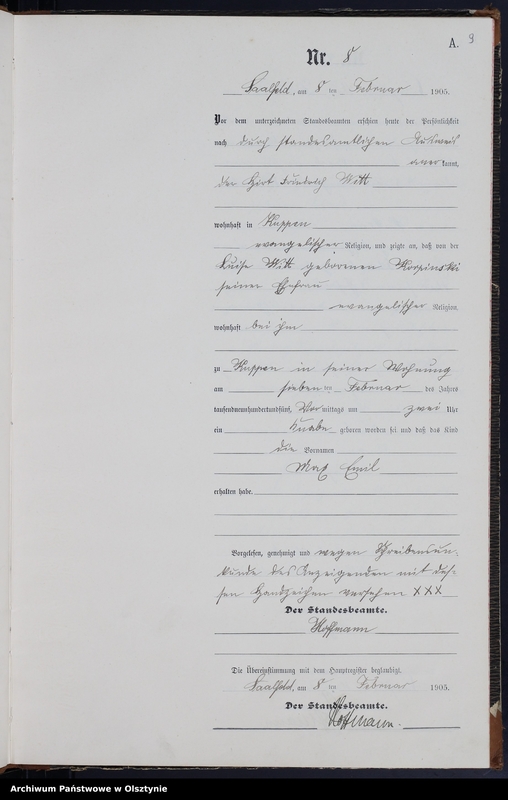 A. 9
Nr. 8
Saalfeld, am 8 ten Februar 1905.
Vor dem unterzeichneten Standesbeamten erschien heute der Persönlichkeit
nach durch standesamtlichen Ausweis
anerkannt,
der Hirt Friedrich Witt
wohnhaft in Kuppen
evangelischer Religion, und zeigte an, daß von der
Luise Witt geborenen
seiner Ehefrau
evangelischer Religion,
wohnhaft bei ihm
zu Kuppen in seiner Wohnung
am sieben ten Februar des Jahres
tausendneunhundertfünf, Vormittags um zwei Uhr
ein Knabe geboren worden sei und daß das Kind
die Vornamen
Max Emil
erhalten habe.
Vorgelesen, genehmigt und wegen Schreibensun-
kunde des Anzeigenden mit des-
sen Handzeichen versehen XXX
Der Standesbeamte.
Hoffmann
Die Übereinstimmung mit dem Hauptregister beglaubigt.
Saalfeld, am 8 ten Februar 1905.
Der Standesbeamte.
Hoffmann.
Archiwum Państwowe w Olsztynie